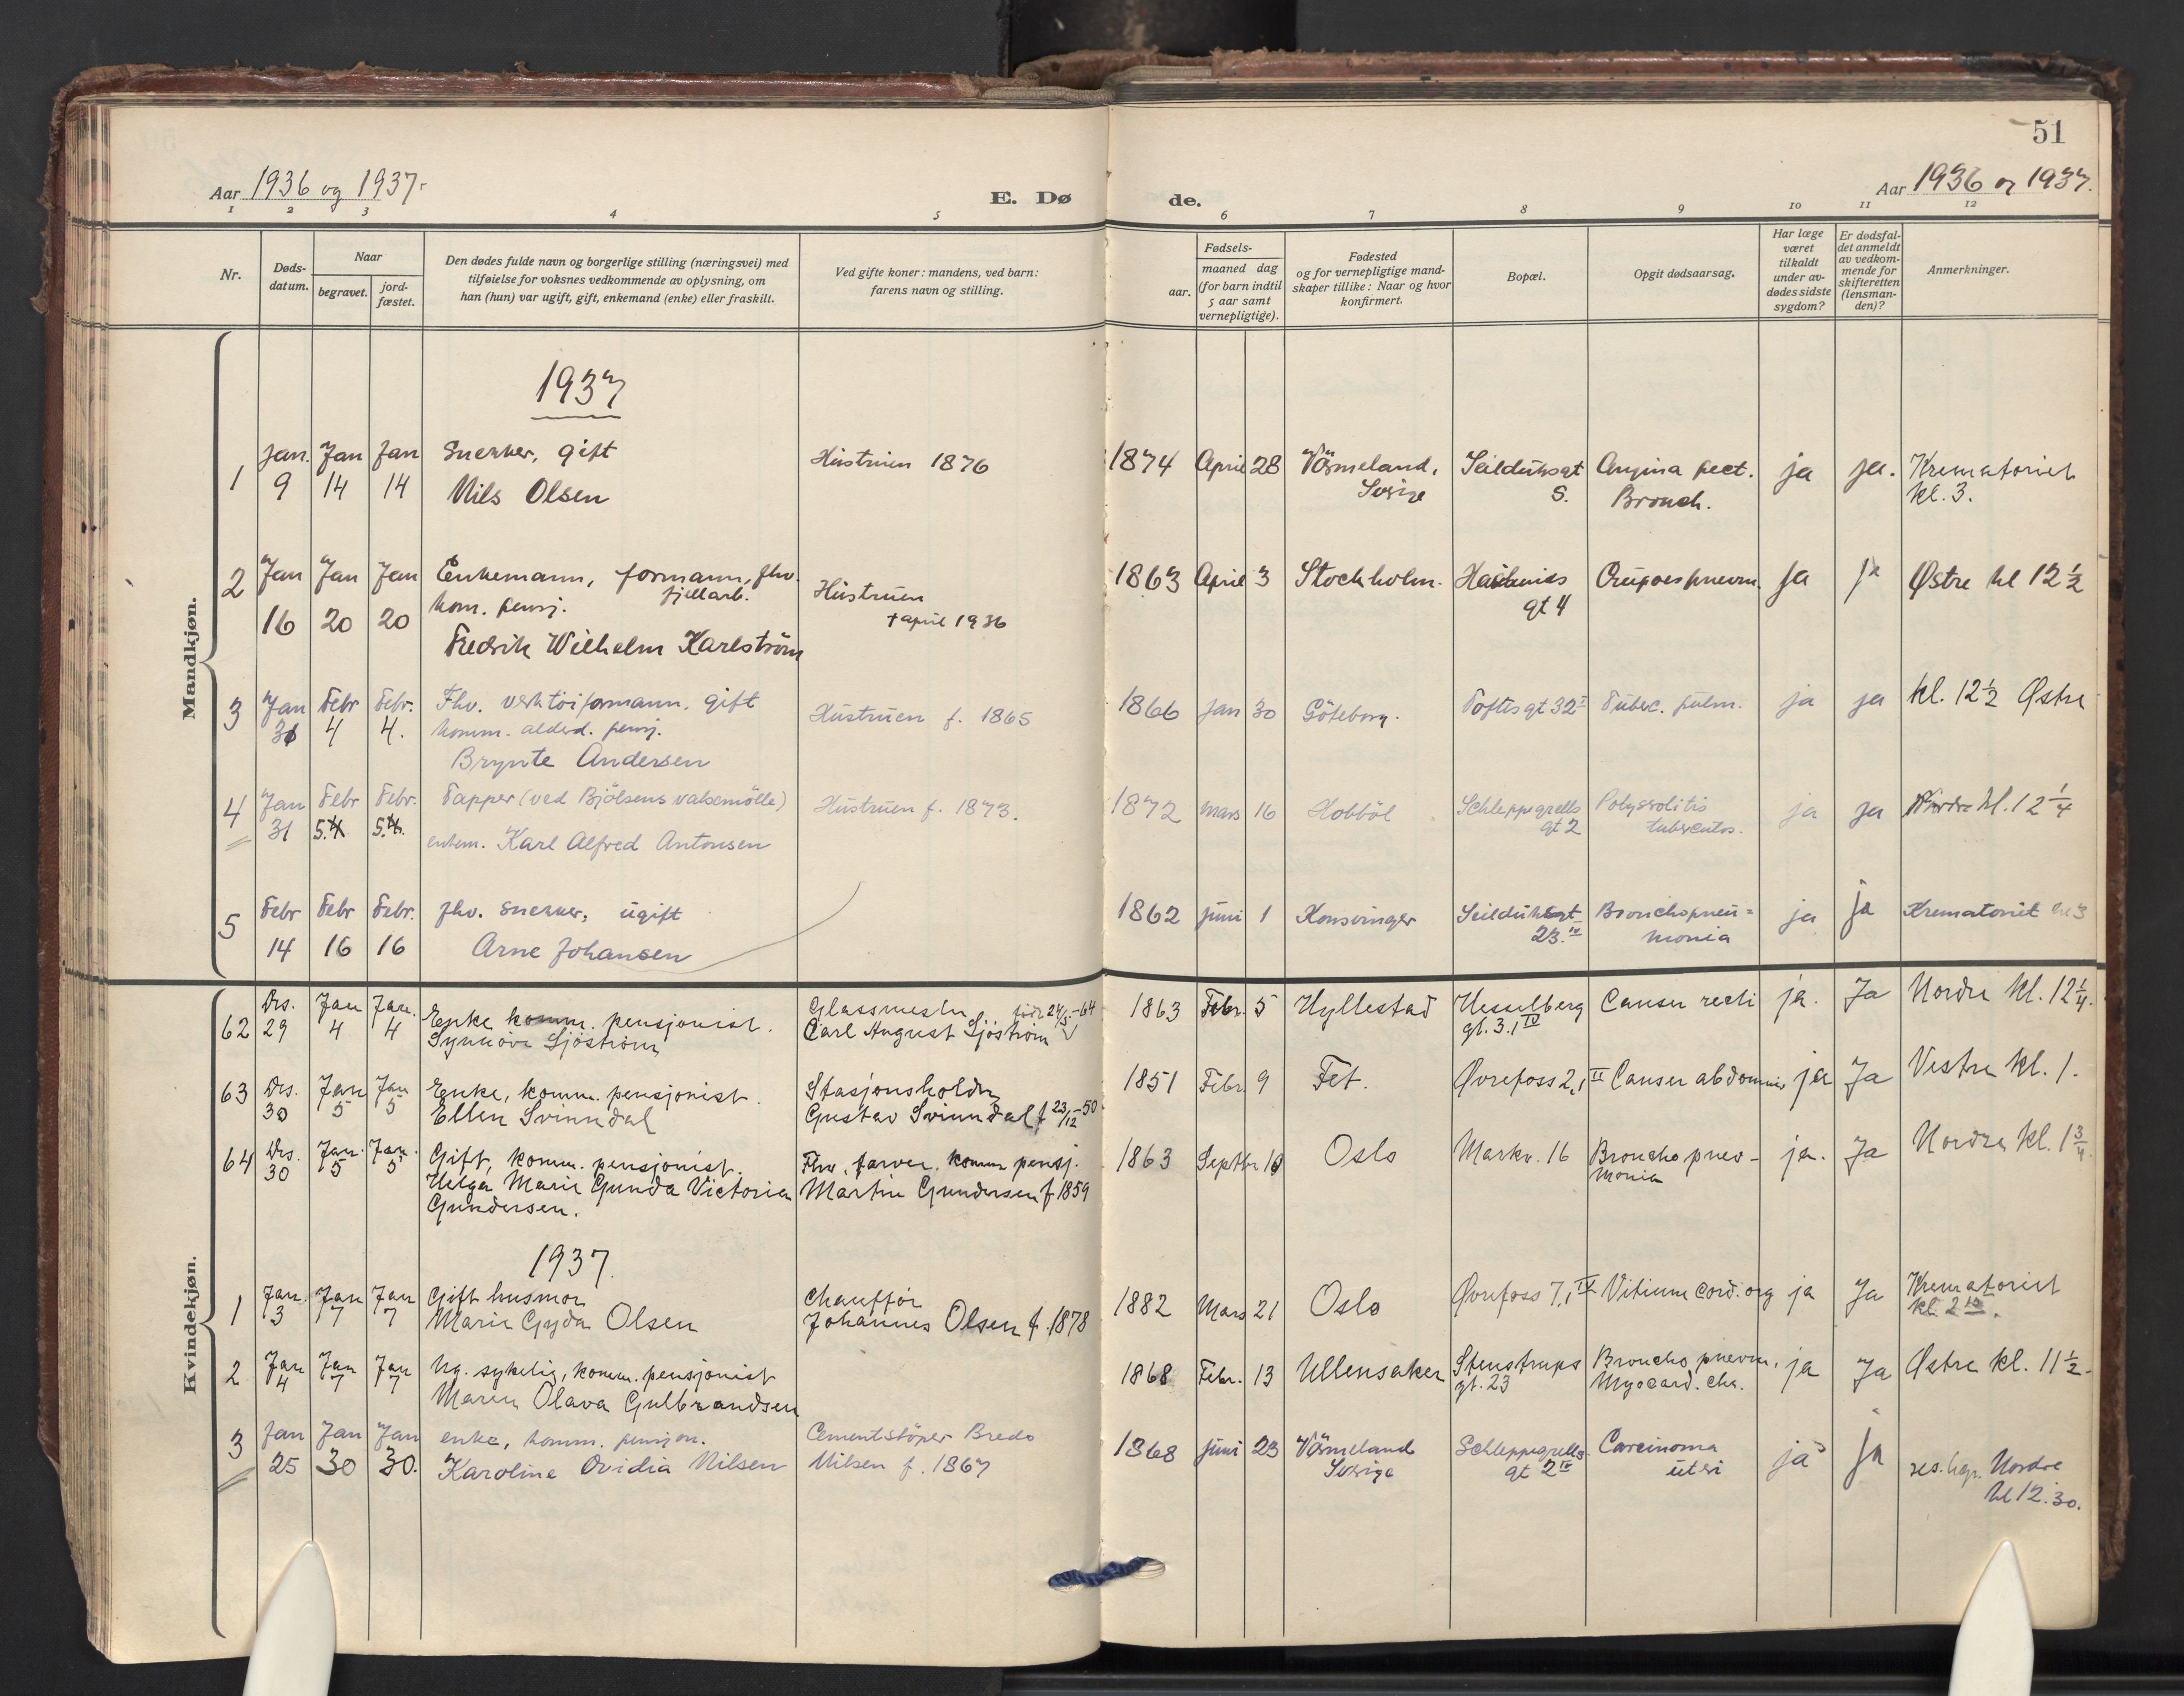 51
Aar 1936 og 1937.
E. Dø
de.
Aar 1936 og 1937.
1 2 3 4 5 6 7 8 9 10 11 12
Nr.
Døds-
datum.
Naar
begravet.
jord-
fæstet.
Den dødes fulde navn og borgerlige stilling (næringsvei) med
tilføielse for voksnes vedkommende av oplysning, om
han (hun) var ugift, gift, enkemand (enke) eller fraskilt.
Ved gifte koner: mandens, ved barn:
farens navn og stilling.
Fødsels-
aar.
maaned dag
(for barn indtil
5 aar samt
vernepligtige).
Fødested
og for vernepligtige mand-
skaper tillike: Naar og hvor
konfirmert.
Bopæl.
Opgit dødsaarsag.
Har læge
været
tilkaldt
under av-
dødes sidste
sygdom?
Er dødsfal-
det anmeldt
av vedkom-
mende for
skifteretten
(lensman-
den)?
Anmerkninger.
Mandkjøn.
1937
1 Jan. 9 Jan 14 Jan 14
Snekker, gift
Nils Olsen
Hustruen 1876
1874 April 28
Värmeland,
Sverige
Seilduksgt
Angina pect.
Bronch.
ja ja.
Krematoriet
kl. 3.
2 Jan 16 Jan 20 Jan 20
Enkemann, formann, fhv.
fjellarb.
kom. pensj.
Fredrik Wilhelm Karlström
Hustruen
† april 1936
1863 April 3
Stockholm.
gt 4
ja ja
Østre kl 12 1/2
3 Jan 31 Febr 4 Febr. 4.
Fhv. verktöiformann, gift
komm. alderd. pensj.
Brynte Andersen
Hustruen f. 1865
1866 Jan 30
Göteborg.
Toftesgt 32 I
Tuberc. pulm.
ja ja
kl. 12 1/2 Østre
4 Jan 31 Febr 5. Febr. 5.
Tapper (ved Bjölsens valsemölle)
enkem. Karl Alfred Antonsen
Hustruen f. 1873.
1872 Mars 16
Hobböl
Schleppegrells
gt 2
tubercutos.
ja ja
Nordre kl. 12 1/4
5 Febr 14 Febr 16 Febr. 16
fhv. snekker, ugift
Arne Johansen
1862 juni 1
Konsvinger
Seilduksgt
23. IV
Bronchopneu=
monia
ja ja
Krematoriet kl 3
Kvindekjøn.
62 Des. 29 Jan 4 Jan. 4
Enke komm. pensjonist.
Synnöve Sjöström
Glassmester född 24/5-64
Carl August Sjöström
1863 Febr. 5
Hyllestad
Hesselberg
gt. 3. I IV
Cancer recti
ja. Ja
Nordre kl. 12 1/4.
63 Des. 30 Jan 5 Jan 5
Enke, komm. pensjonist.
Ellen Svinndal
Stasjonsholder
Gustav Svinndal f 23/12-50
1851 Febr 9
Fet.
Øvrefoss 2, I II
Cancer abdominis
ja Ja
Vestre kl. 1.
64 Des. 30 Jan. 5 Jan. 5
Gift, komm. pensjonist.
Helga Marie Gunda Victoria
Gundersen.
Fhv. farver. komm pensj.
Martin Gundersen f 1859
1863 Septbr
Oslo
Markv. 16
Broncho pnev-
monia
ja. Ja
Nordre kl. 1 3/4.
1937.
1 Jan 3 Jan 7 Jan 7
Gift husmor
Marie Gyda Olsen
Chaufför
Johannes Olsen f. 1878
1882 Mars 21
Oslo
Øvrefoss 7, I IV
Vitium cord. org
ja Ja
Krematoriet
2 Jan 4 Jan 7 Jan 7
Ug. sykelig, komm. pensjonist
Maren Olava Gulbrandsen
1868 Febr. 13
Ullensaker
Stenstrups
gt. 23
Broncho pnevm.
Myocard. chr.
ja Ja
Østre kl. 11 1/2.
3 Jan 25 Jan 30 Jan 30.
enke, komm. pensjon.
Karoline Ovidia Nilsen
Cementstöper Bredo
Nilsen f. 1867
1868 juni 23
Värmeland
Sverige
Schleppegrells
gt 2 IV
Carcinoma
uteri
ja ja
Nordre
kl 12.30.